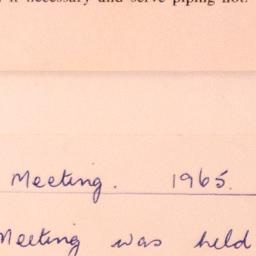 it necessary and serve piping hot.
Meeting. 1965.
Meeting was held